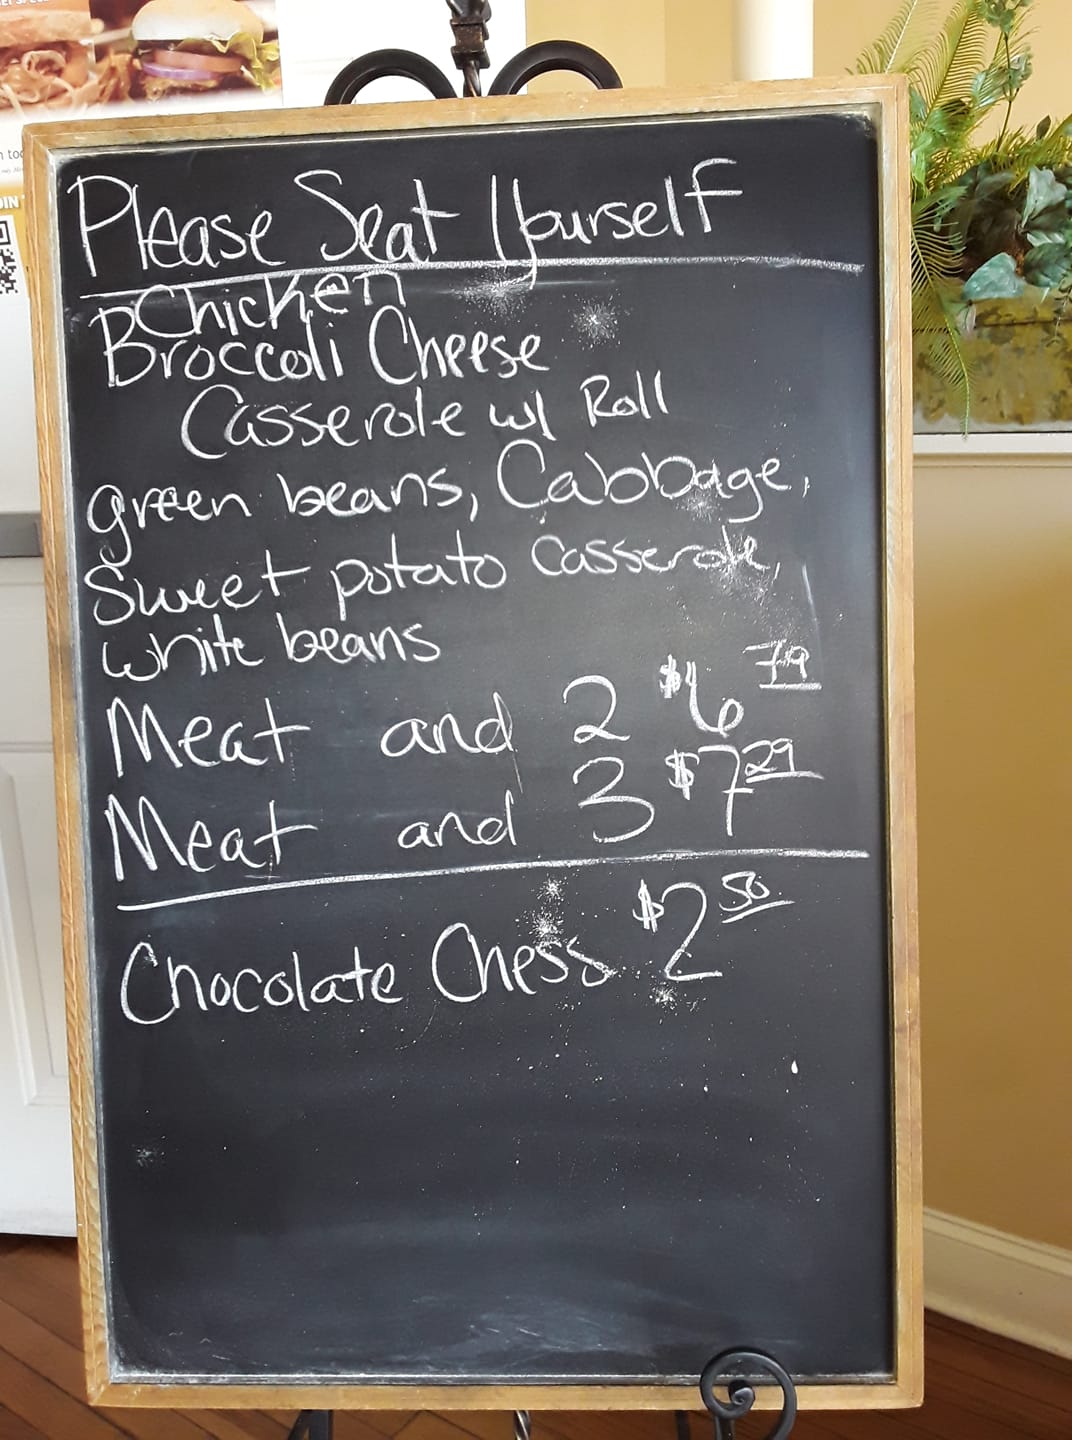 Please Seat Yourself
Chicken
Broccoli Cheese
Casserole w/ Roll
green beans, Cabbage,
Sweet potato casserole,
white beans
Meat and 2 $6 79
Meat and 3 $7 29
Chocolate Chess $2 50